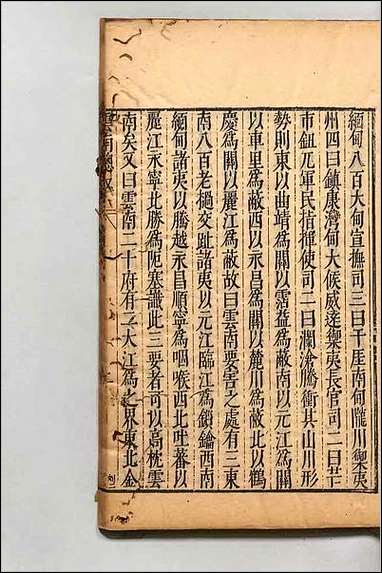 緬甸八百大甸宣撫司三曰干崖南甸隴川禦夷
州四曰鎮康灣甸大候威遠禦夷長官司二曰芒
市鈕兀軍民指揮使司二曰瀾滄騰衝其山川形
勢則東以曲靖爲關以霑益爲蔽南以元江爲關
以車里爲蔽西以永昌爲關以麓川爲蔽北以鶴
慶爲關以麗江爲蔽故曰雲南要害之處有三東
南八百老撾交趾諸夷以元江臨江爲鎖鑰西南
緬甸諸夷以騰越永昌順寧爲咽喉西北吐蕃以
麗江永寧北勝爲阨塞識此三要者可以高枕雲
南矣又曰雲南二十府有二大江爲之界東北金